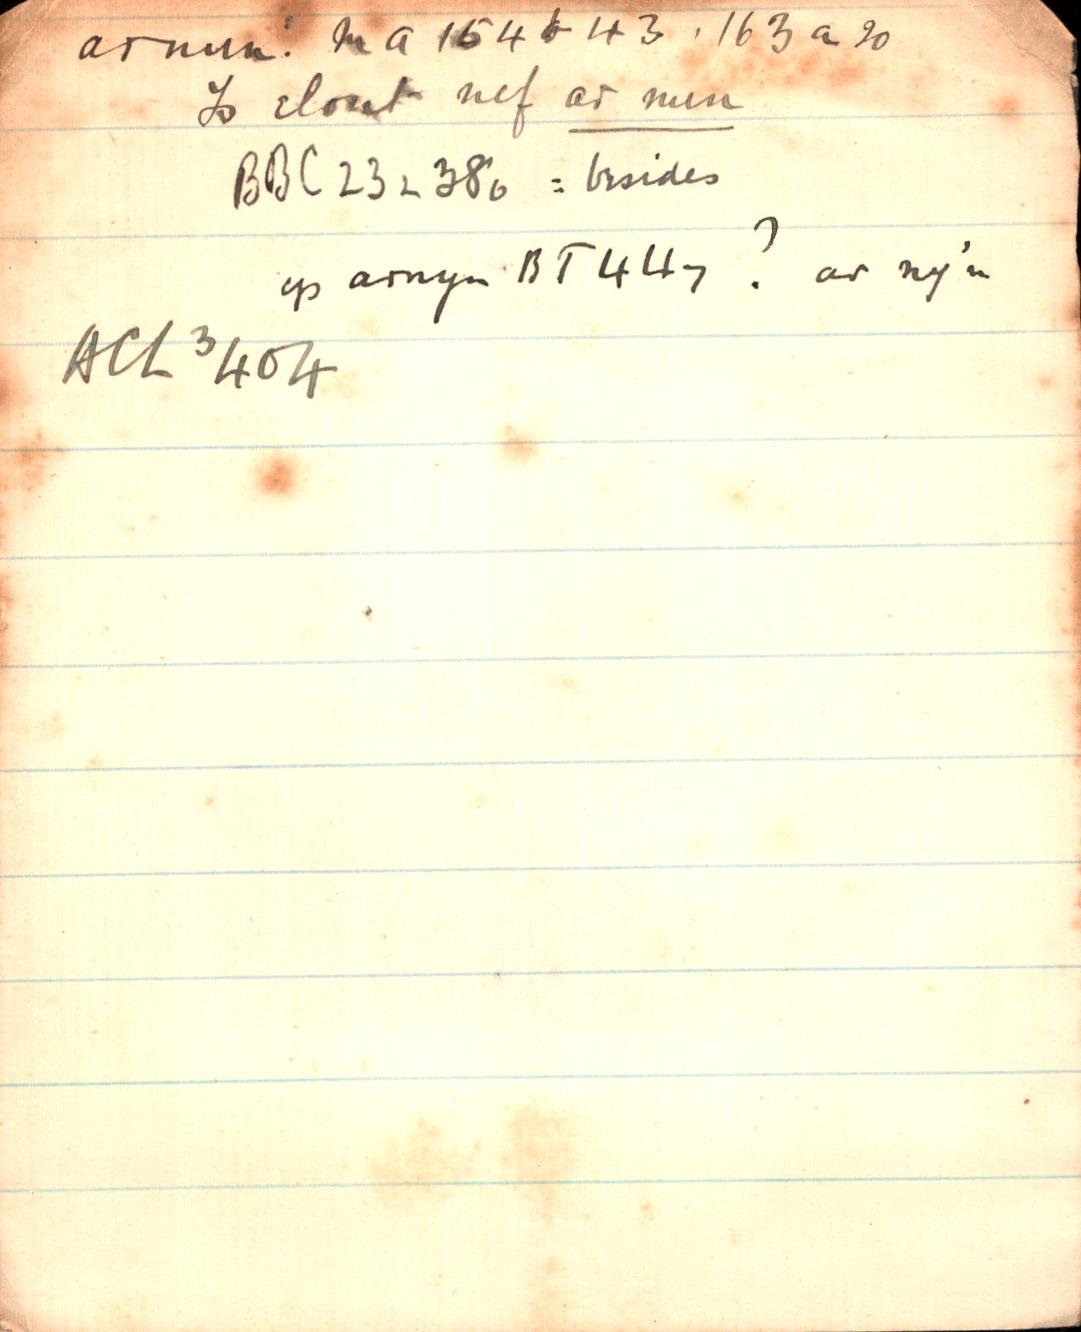 arnun: MA 154 b 43, 163 a 20
Is clout nef ar nun
BBC 23₂ 38₆ = besides
ys arnyn BT 44₇ ? ar ny'n
ACL³ 404